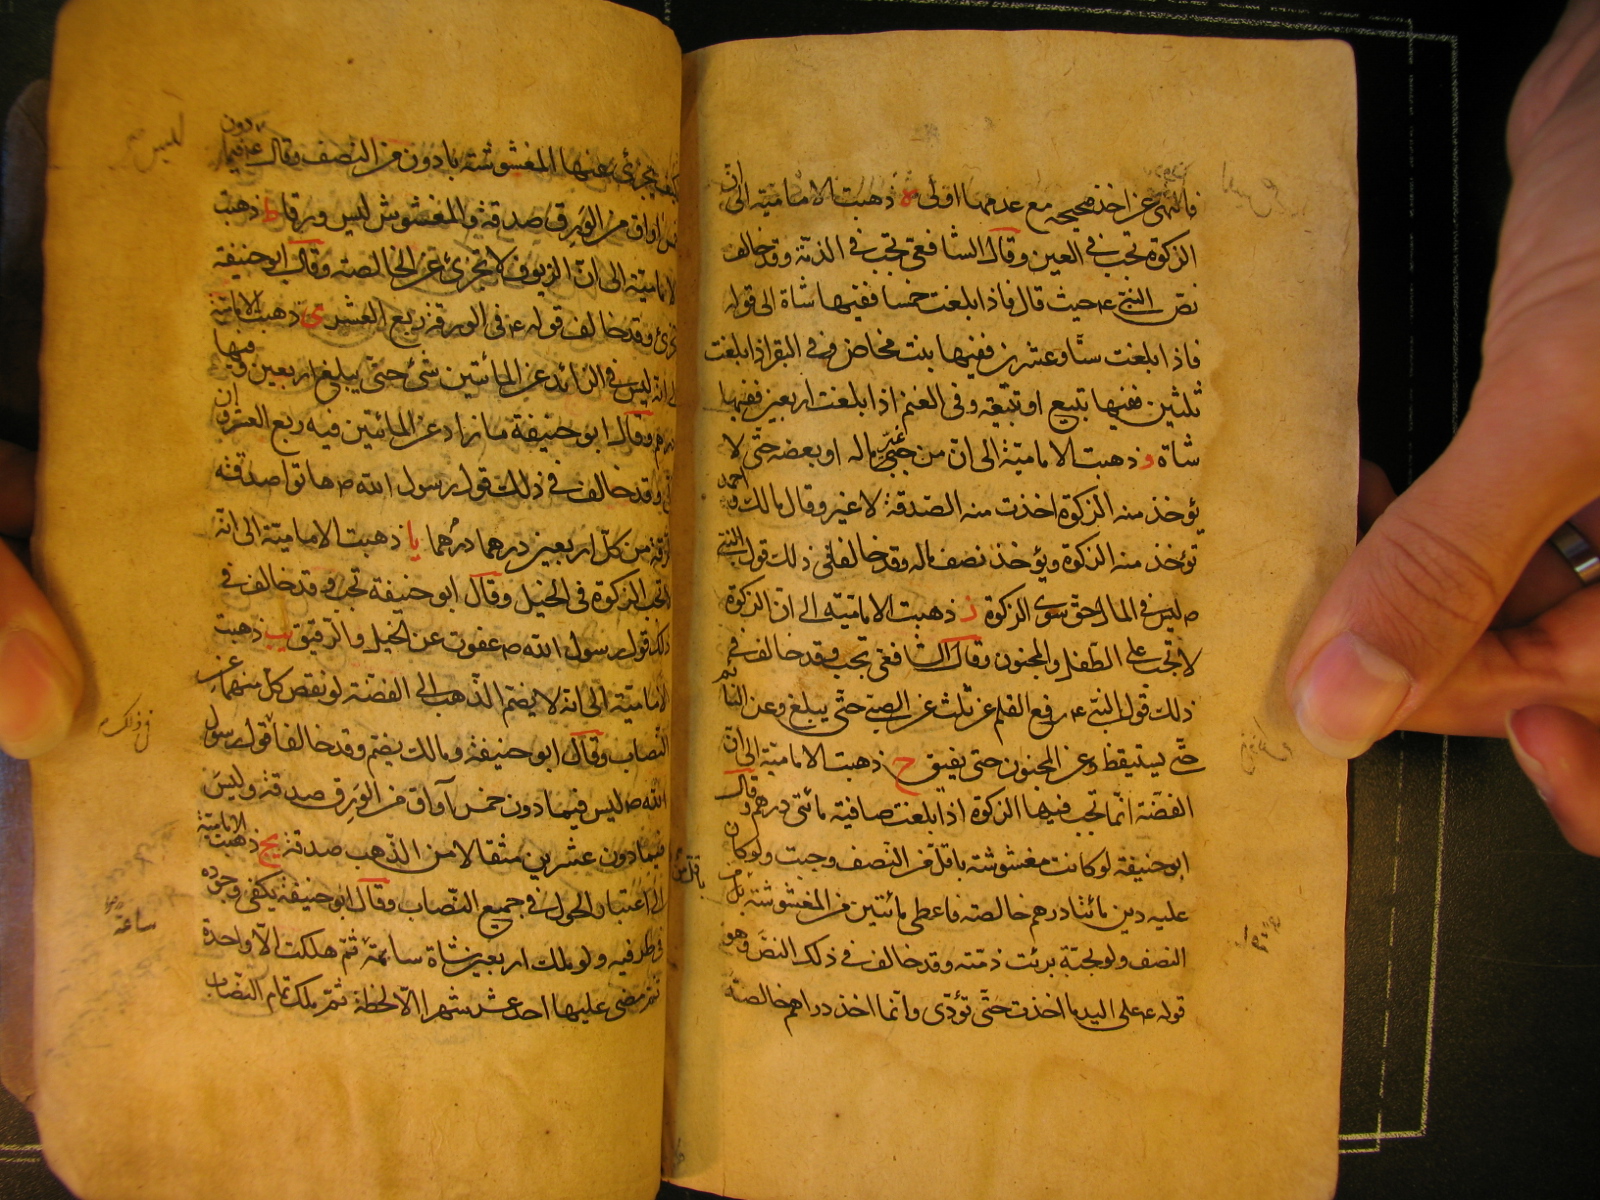 فالنهى عن اخذ صحيحه مع عدمها اولى ه ذهبت الاماميّة الى ان
الزكوة تجب فى العين وقال الشافعى تجب فى الذمّة وقد خالف
نصّ النبىّ عم حيث قال فاذا بلغت خمسا ففيها شاة الى قوله
فاذا بلغت ستّا وعشرين ففيها بنت مخاض وفى البقر اذا بلغت
ثلثين ففيها تبيع او تبيعه وفى الغنم اذا بلغت اربعين ففيها
شاة و ذهبت الاماميّة الى انّ من غيّب ماله او بعضه حتّى لا
يؤخذ منه الزكوة اخذت منه الصّدقة لا غير وقال مالك واحمد
تؤخذ منه الزكوة ويؤخذ نصف ماله وقد خالفا فى ذلك قول النبىّ
ص ليس فى المال حقّ سوى الزكوة ز ذهبت الاماميّة الى انّ الزكوة
لا تجب على الطّفل والمجنون وقال الشافعى تجب وقد خالف فى
ذلك قول النبىّ عم رفع القلم عن ثلث عن الصّبىّ حتّى يبلغ وعن النائم
حتّى يستيقظ وعن المجنون حتى يفيق ح ذهبت الاماميّة الى ان
الفضّة انّما تجب فيها الزكوة اذا بلغت صافية مائتى درهم وقال
ابو حنيفة لو كانت مغشوشة باقلّ من النّصف وجبت ولو كان
عليه دين مائتا درهم خالصة فاعطى مائتين من المغشوشة باقل من
النصف ولو لحبّة برئت ذمّته وقد خالف فى ذلك النصّ وهو
قوله عم على اليد ما اخذت حتّى تؤدّى وانّما اخذ دراهم خالصة
فكيف يجزئ عنها المغشوشة بادون من النصف وقال عم فيما دون
خمس اواق من الورق صدقة والمغشوش ليس ورقا ط ذهبت
الاماميّة الى انّ الزيوف لا يجزئ عن الخالصة وقال ابو حنيفة
يجزئ وقد خالف قوله عم فى الورق ربع العشر ى ذهبت الاماميّة
الى انّه ليس فى الزائد عن المائتين شئ حتّى يبلغ اربعين ففيها
درهم وقال ابو حنيفة ما زاد عن المائتين فيه ربع العشر وان
قلّ وقد خالف فى ذلك قول رسول الله ص هاتوا صدقة
الرّقة من كلّ اربعين درهما درهما يا ذهبت الاماميّة الى انّه
لا تجب الزكوة فى الخيل وقال ابو حنيفة تجب وقد خالف فى
ذلك قول رسول الله ص عفوت عن الخيل والرّقيق يب ذهبت
الاماميّة الى انّه لا يضمّ الذّهب الى الفضّة لو نقص كلّ منهما عن
النّصاب وقال ابو حنيفة ومالك يضمّ وقد خالفا قول رسول
الله ص ليس فيما دون خمس اواق من الورق صدقة وليس
فيما دون عشرين مثقالا من الذّهب صدقة يج ذهبت الاماميّة
الى اعتبار الحول فى جميع النّصاب وقال ابو حنيفة يكفى وجوده
فى طرفيه ولو ملك اربعين شاة سائمة ثمّ هلكت الّا واحدة
ثمّ مضى عليها احد عشر شهرا الّا لحظة ثمّ ملك تمام النصاب
ليس
فى ذلك
ساعة
باقل من